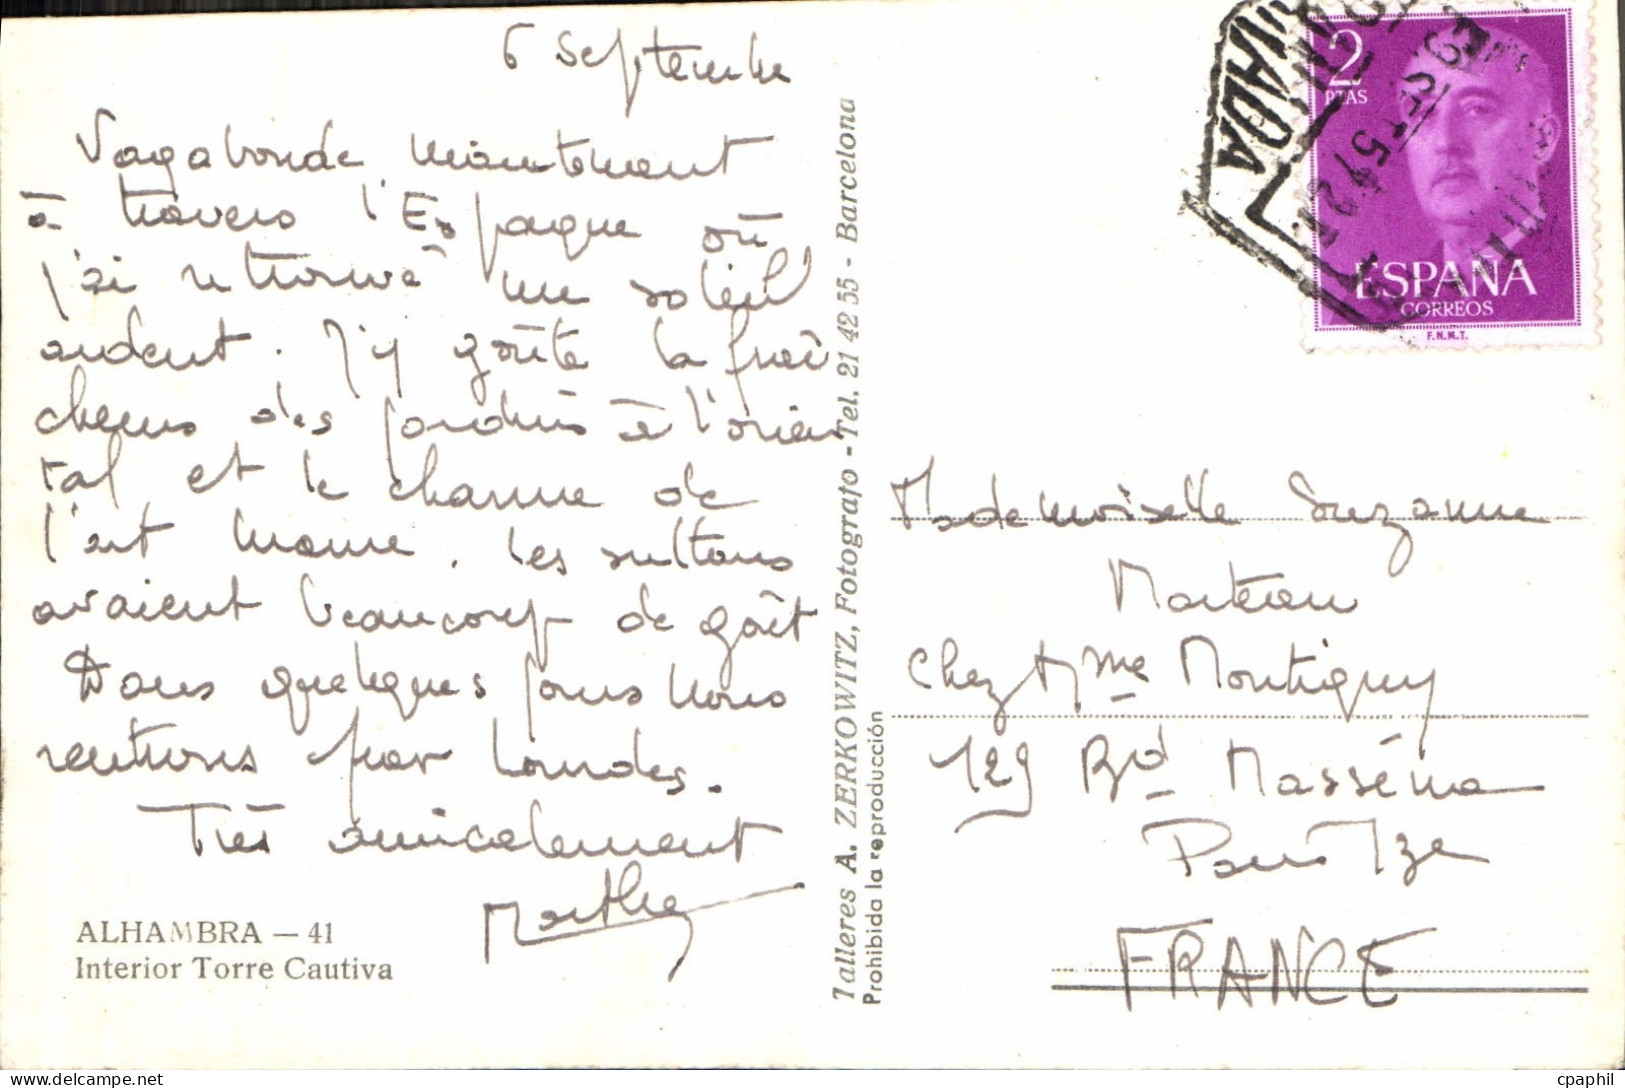 6 Septembre
Vagabonde maintenant
à travers l'Espagne où
j'ai retrouvé un soleil
ardent. J'y goûte la fraî
cheur des jardins à l'orien
tal et le charme de
l'art maure. Les sultans
avaient beaucoup de goût
Dans quelques jours nous
rentrons par Lourdes.
Très amicalement
Marthe
ALHAMBRA — 41
Interior Torre Cautiva
Talleres A. ZERKOWITZ, Fotografo - Tel. 21 42 55 - Barcelona
Prohibida la reproducción
2
PTAS
ESPAÑA
CORREOS
F.N.M.T.
Mademoiselle Suzanne
chez Mme Montigny
129 Bd Masséna
Paris 13e
FRANCE
cpaphil